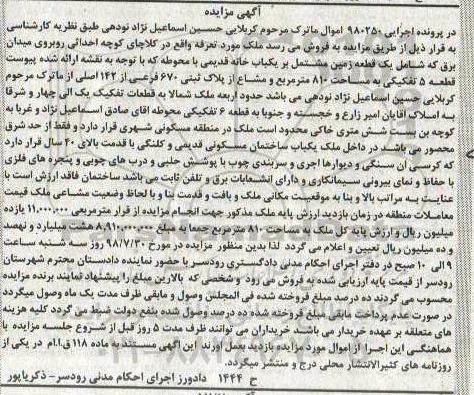 آگهی مزایده
در پرونده اجرایی ۹۸۰۲۵۰ اموال ماترک مرحوم کربلایی حسین اسماعیل نژاد نودهی طبق نظریه کارشناسی
به قرار ذیل از طریق مزایده به فروش می رسد ملک مورد تعرفه واقع در کلاچای کوچه احداثی روبروی میدان
برق که شامل یک قطعه زمین مشتمل بر یکباب خانه قدیمی با محوطه که با توجه به نقشه ارائه شده پیوست
قطعه ۵ تفکیکی به مساحت ۸۱۰ مترمربع و مشاع از پلاک ثبتی ۶۷۰ فرعی از ۱۴۲ اصلی از ماترک مرحوم
کربلایی حسین اسماعیل نژاد نودهی می باشد حدود اربعه ملک شمالا به قطعات تفکیک یک الی چهار و شرقا
به املاک آقایان امیر زارع و خجسته و جنوبا به قطعه ۶ تفکیکی محوطه اقای صادق اسماعیل نژاد و غربا به
کوچه بن بست شش متری خاکی محدود است ملک در منطقه مسکونی شهری قرار دارد و فقط از حد شرق
محصور می باشد در داخل ملک یکباب ساختمان مسکونی قدیمی و کلنگی با قدمت بالای ۴۰ سال قرار دارد
که کرسی آن سنگی و دیوارها اجری و سربندی چوب با پوشش حلبی و درب های چوبی و پنجره های فلزی
با حفاظ و نمای بیرونی سیمانکاری و دارای انشعابات برق و تلفن ثابت می باشد ساختمان فاقد ارزش است با
عنایت به مراتب بالا و بنا به موقعیت مکانی ملک و بافت و قدمت بنا و با لحاظ وضعیت مشاعی ملک قیمت
معاملات منطقه در زمان بازدید ارزش پایه ملک مذکور جهت انجام مزایده از قرار مترمربعی ۱۱,۰۰۰,۰۰۰ یازده
میلیون ریال و ارزش پایه کل ملک به مساحت ۸۱۰ مترمربع جمعا به مبلغ ۸,۹۱۰,۰۰۰,۰۰۰ هشت میلیارد و نهصد
و ده میلیون ریال تعیین و اعلام می گردد لذا بدین منظور مزایده در مورخ ۹۸/۷/۳۰ روز سه شنبه ساعت
۹ الی ۱۰ صبح در دفتر اجرای احکام مدنی دادگستری رودسر با حضور نماینده دادستان محترم شهرستان
رودسر از قیمت پایه ارزیابی شده به فروش می رود و شخصی که بالاترین مبلغ را پیشنهاد نماید برنده مزایده
محسوب می گردند ده درصد مبلغ فروخته شده فی المجلس وصول و مابقی ظرف مدت یک ماه وصول میگردد
در صورت عدم پرداخت مابقی مبلغ فروخته شده ده درصد وصول شده بنفع دولت ضبط می گردد کلیه هزینه
های متعلقه بر عهده خریدار می باشد خریداران می توانند ظرف مدت ۵ روز قبل از شروع جلسه مزایده با
هماهنگی این اجرا از اموال مورد مزایده بازدید بعمل آورند این آگهی مستندا به ماده ۱۱۸ ق.ا.ام در یکی از
روزنامه های کثیرالانتشار محلی درج و منتشر میگردد.
ح ۱۴۴۴ دادورز اجرای احکام مدنی رودسر- ذکریاپور